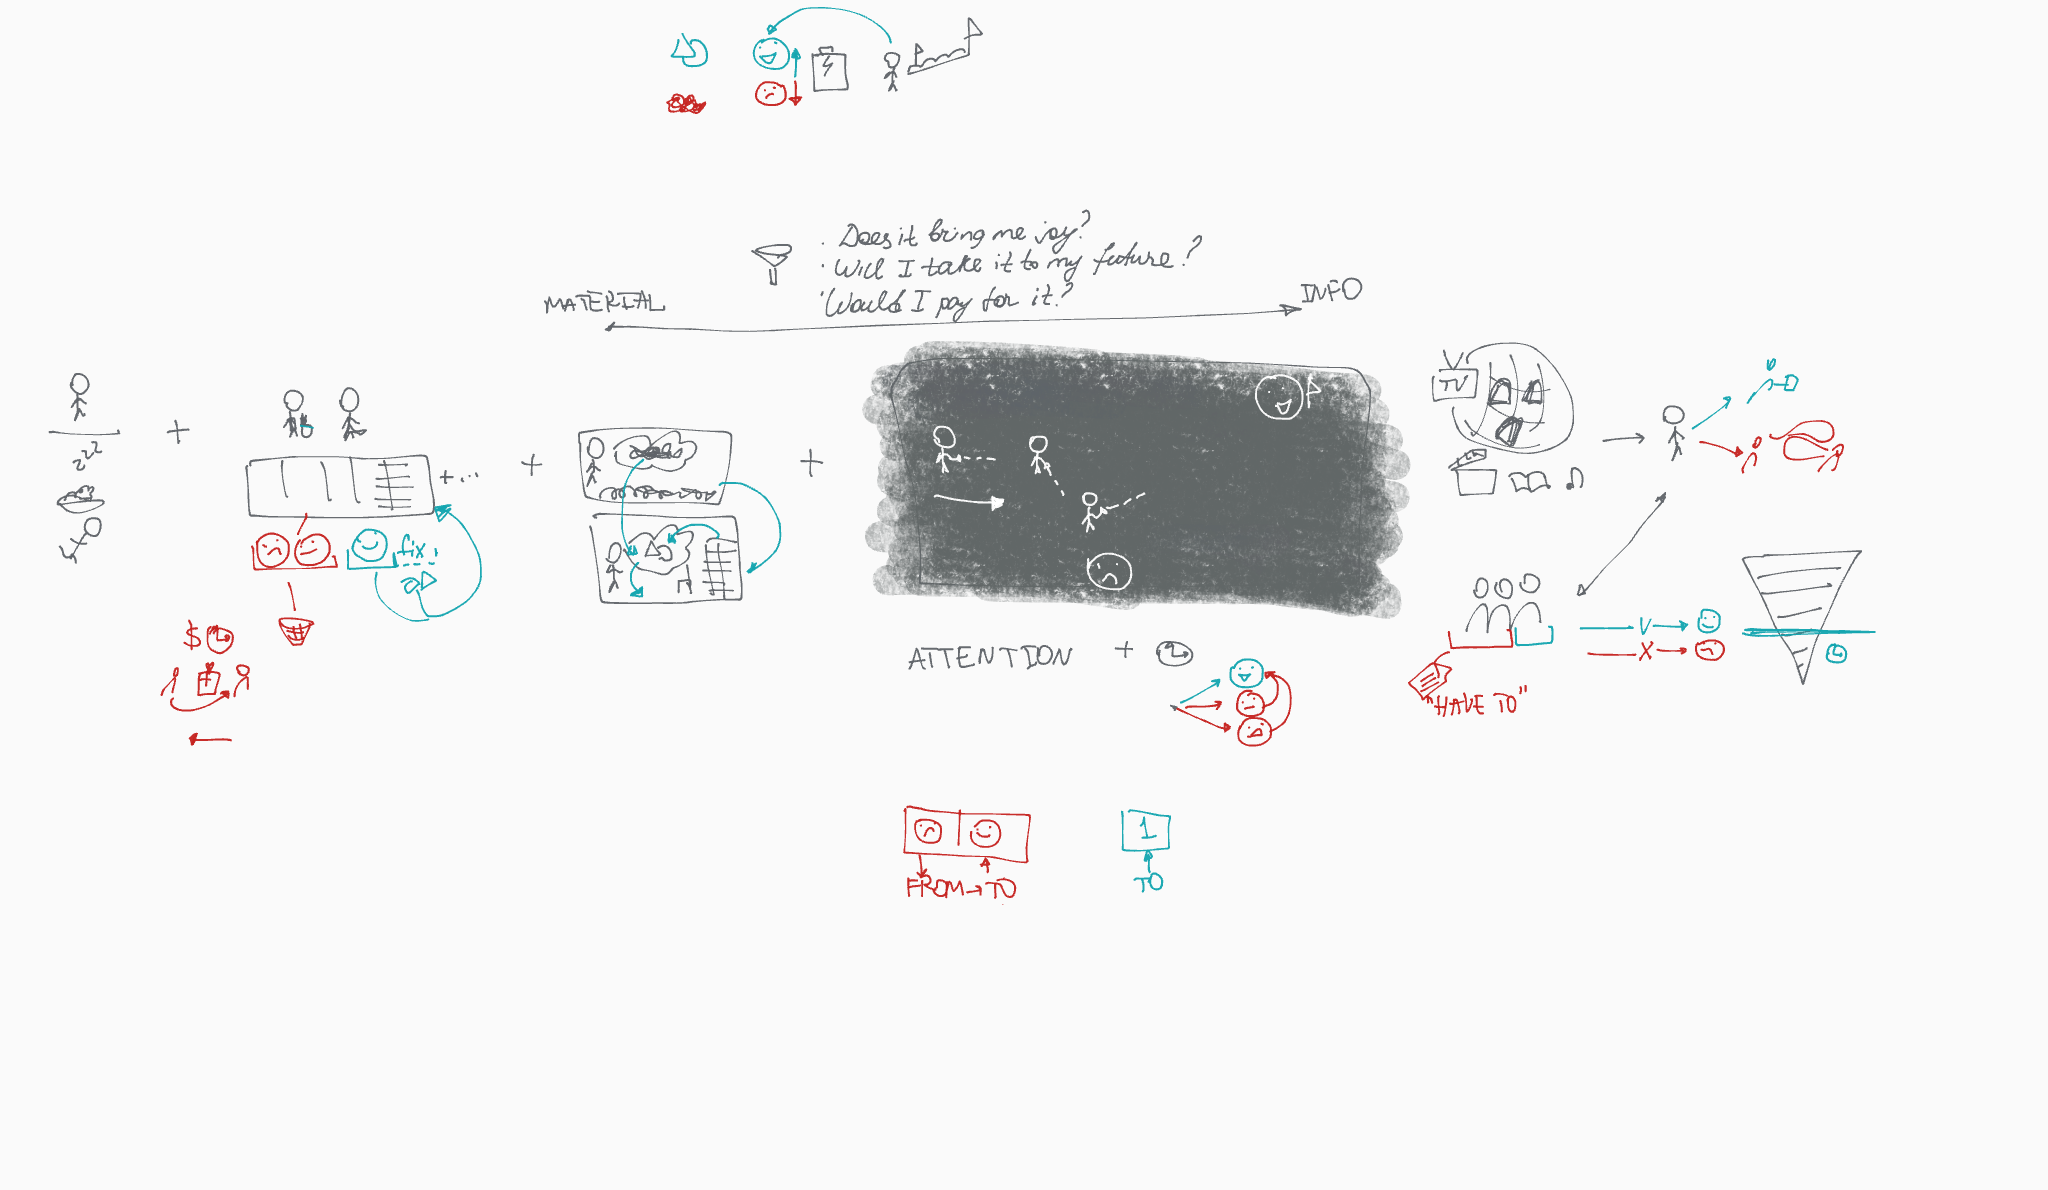 · Does it bring me joy?
· Will I take it to my future?
· Would I pay for it?
MATERIAL
INFO
zzz
TV
+...
fix
$
ATTENTION +
V
X
"HAVE TO"
1
FROM → TO
TO